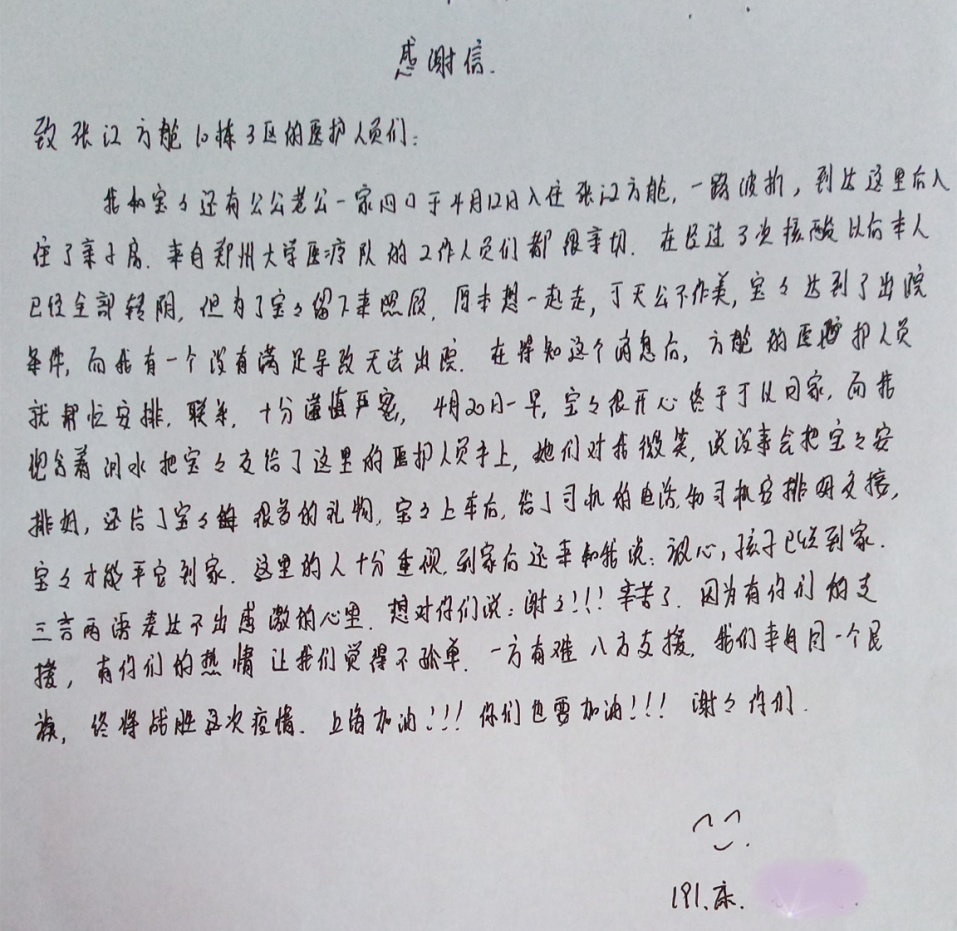 感谢信.
致张江方舱10栋3区的医护人员们:
我和宝々还有公公老公一家四口于4月12日入住张江方舱,一路波折,到达这里后入
住了亲子房.来自郑州大学医疗队的工作人员们都很亲切.在经过3次核酸以后本人
已经全部转阴,但为了宝々留下来照顾,原本想一起走,于天公不作美,宝々达到了出院
条件,而我有一个没有满足导致无法出院.在得知这个消息后,方舱的医护人员
就帮忙安排,联系,十分谨慎严密,4月20日一早,宝々很开心终于可以回家,而我
抱含着泪水把宝々交给了这里的医护人员手上,她们对我微笑,说没事会把宝々安
排好,还给了宝々很多的礼物,宝々上车后,给了司机的电话,和司机安排好交接,
宝々才能平安到家.这里的人十分重视,到家后还来和我说:放心,孩子已经到家.
三言两语表达不出感激的心里.想对你们说:谢々!!!辛苦了.因为有你们的支
援,有你们的热情让我们觉得不孤单.一方有难八方支援.我们来自同一个民
族,终将战胜这次疫情.上海加油!!!你们也要加油!!!谢々你们.
191.床.